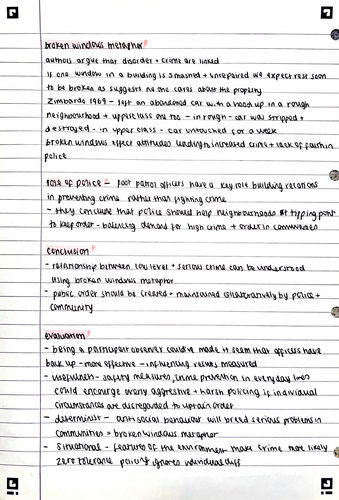 broken windows metaphor
authors argue that disorder + crime are linked
if one window in a building is smashed + unrepaired we expect rest soon
to be broken as suggests no one cares about the property
Zimbardo 1969 - left an abandoned car with a hood up in a rough
neighbourhood + upperclass one too - in rough - car was stripped +
destroyed - in upper class - car untouched for a week
broken windows effect attitudes leading to increased crime + lack of faith in
police
role of police - foot patrol officers have a key role building relations
in preventing crime rather than fighting crime
- they conclude that police should help neighbourhoods at tipping point
to keep order - balancing demand for high crime + order in communities
conclusion
- relationship between low level + serious crime can be understood
using broken windows metaphor
- public order should be created + maintained collaboratively by police +
community
evaluation
- being a participant observer could've made it seem that officers have
back up - more effective - influencing results measured
- usefulness - safety measures, crime prevention in everyday lives
could encourge overly aggressive + harsh policing if individual
circumstances are disregarded to uptain order
- determinist - antisocial behaviour will breed serious problems in
communities = broken windows metaphor
- Situational - features of the environment make crime more likely
zero tolerance policing ignores individual diff